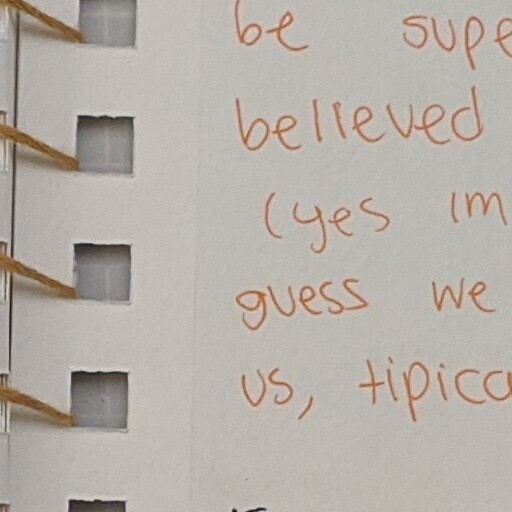 be supe
believed
(yes im
guess we
us, tipica